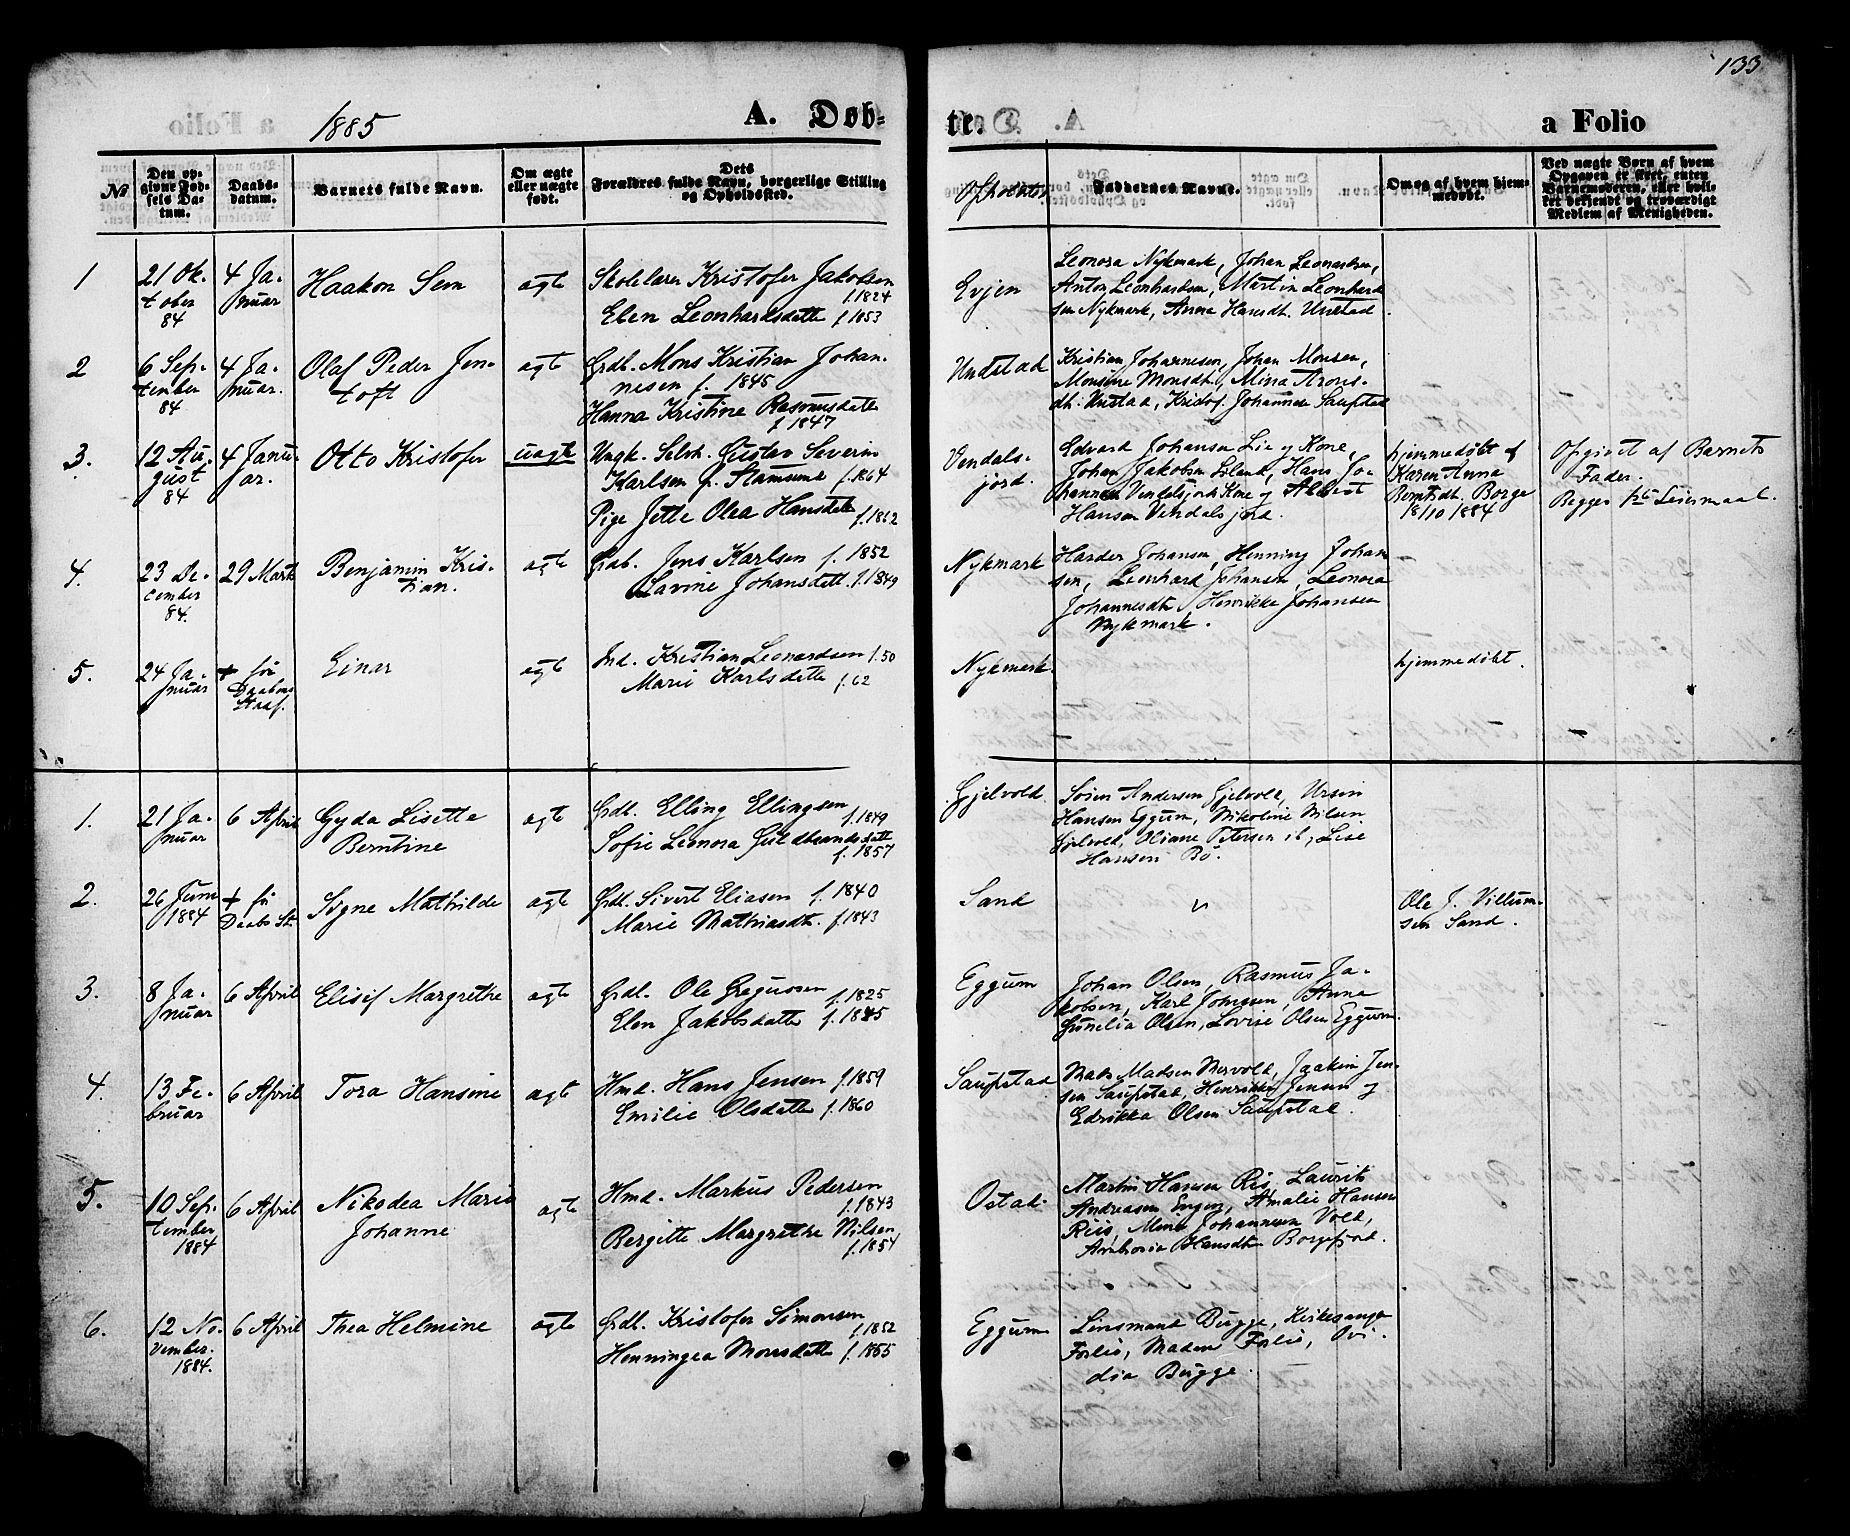 133
1885
A. Døb=
tr.
a Folio
No
Den op-
givne Fød-
sels Da-
tum.
Daabs-
datum.
Barnets fulde Navn.
Om ægte
eller uægte
født.
Dets
Forældres fulde Navn, borgerlige Stilling
og Opholdssted.
Opholdsted
Faddernes Navne.
Om og af hvem hjem-
medøbt.
Ved uægte Børn af hvem
Opgaven er sket, enten
Barnemoderen, eller hvil-
ket bekjendt og troværdigt
Medlem af Menigheden.
1
21 Ok-
tober
84
4 Ja-
nuar
Haakon Sem
ægte
Skolelærer Kristofer Jakobsen
f. 1824
Elen Leonhardsdatte f 1853
Evjen
Leonora Nykmark, Johan Leonardsen,
Anton Leonhardsen, Martin Leonhard
sen Nykmark, Anna Hansdt. Unstad
2
6 Sep-
tember
84
4 Ja-
nuar.
Olaf Peder Jen-
toft
ægte
Grdb. Mons Kristian Johan-
nesen f. 1845
Hanna Kristine Rasmusdatte
f 1847
Undstad
Kristian Johannesen, Johan Monsen,
Monsine Monsdt., Mina Arons-
dt. Unstad, Kristof. Johannes Saupstad
3.
12 Au-
gust
84
4 Janu-
ar.
Otto Kristofer
uægte
Ungk. Selvh. Gustav Severin
Karlsen f. Stamsund f. 1864
Pige Jette Olea Hansdatte f. 1862
Vendals-
jord.
Edvard Johansen Lie og Kone,
Johan Jakobsen Liland, Hans Jo-
hannesen Vendalsjords Kone og Albert
Hansen Vendalsjord.
hjemmedøbt af
Karen Anna
Berntsdt. Borge
18/10 1884
Opgivet af Barnets
Fader.
Begges 1ste Leiermaal.
4.
23 De-
cember
84.
29 Marts
Benjamin Kris-
tian.
ægte
Grdb. Jens Karlsen f. 1852
Lavine Johansdatt. f. 1849
Nykmark
Harder Johansen, Henning Johan
sen, Leonhard Johansen, Leonora
Johannesdt., Henrikke Johansen
Nykmark.
5.
24 Ja-
nuar
+ før
Daabens
Stadf.
Einar
ægte
Ind. Kristian Leonardsen f. 50
Marie Karlsdatte f. 62
Nykmark
hjemmedøbt.
1.
21 Ja-
nuar
6 April
Gyda Lisette
Berntine
ægte
Grdb. Elling Ellingsen
f. 1849
Sofie Leonora Guldbrandsdatt
f. 1857
Gjelvold.
Søren Andersen Gjelvold, Ursin
Hansen Eggum, Nikoline Nilsen
Gjelvold, Oliane Petersen ib, Lise
Hansen Bø.
2.
26 Juni
1884
+ før
Daabs St.
Signe Mathilde
ægte
Grdb. Sivert Eliasen f. 1840
Marie Mathiasdt. f. 1843
Sand
Ole J. Villum-
sen Sand.
3.
8 Ja-
nuar
6 April
Elisif Margrethe
ægte
Grdb. Ole Gregussen f. 1825
Elen Jakobsdatte f. 1845
Eggum
Johan Olsen, Rasmus Ja-
kobsen, Karl Johnsen, Anna
Gunelia Olsen, Lovise Olsen Eggum.
4.
13 Fe-
bruar
6 April
Tora Hansine
ægte
Hmd. Hans Jensen f. 1859
Emilie Olsdatte f. 1860
Saupstad
Mads Madsen Mervold, Joakim Jen-
sen Saupstad, Henrikke Jensen og
Edrikka Olsen Saupstad.
5.
10 Sep-
tember
1884
6 April
Nikodea Marie
Johanne
ægte
Hmd. Markus Pedersen
f. 1843
Bergitte Margrethe Nilsen
f. 1854
Ostad.
Martin Hansen Ris, Laurits
Andreasen Engen, Amalie Hansen
Riis, Mine Johannesen Vold,
Hansdt. Borgefjord.
6.
12 No-
vember.
1884.
6 April
Thea Helmine
ægte
Grdb. Kristofer Simonsen
f. 1852
Henningea Monsdatte f. 1855
Eggum
Lensmand Bugge, Kirkesanger
Forliò, Madam Forliò, Ovi-
dia Bugge.